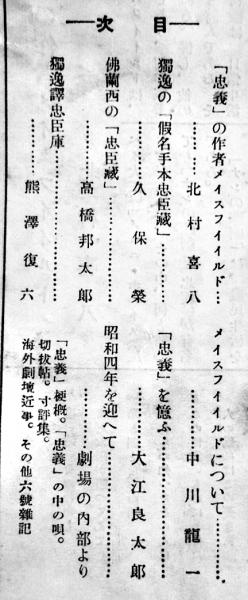 目次
「忠義」の作者メイスフイイルド…
…………北村喜八
獨逸の「假名手本忠臣藏」…………
…………久保榮
佛蘭西の「忠臣藏」…………
…………高橋邦太郎
獨逸譯忠臣庫…………
…………熊澤復六
メイスフイイルドについて…………
…………中川龍一
「忠義」を憶ふ…………
…………大江良太郎
昭和四年を迎へて…………
…………劇場の内部より
「忠義」梗概。「忠義」の中の唄。
切拔帖。寸評集。
海外劇壇近事。その他六號雜記